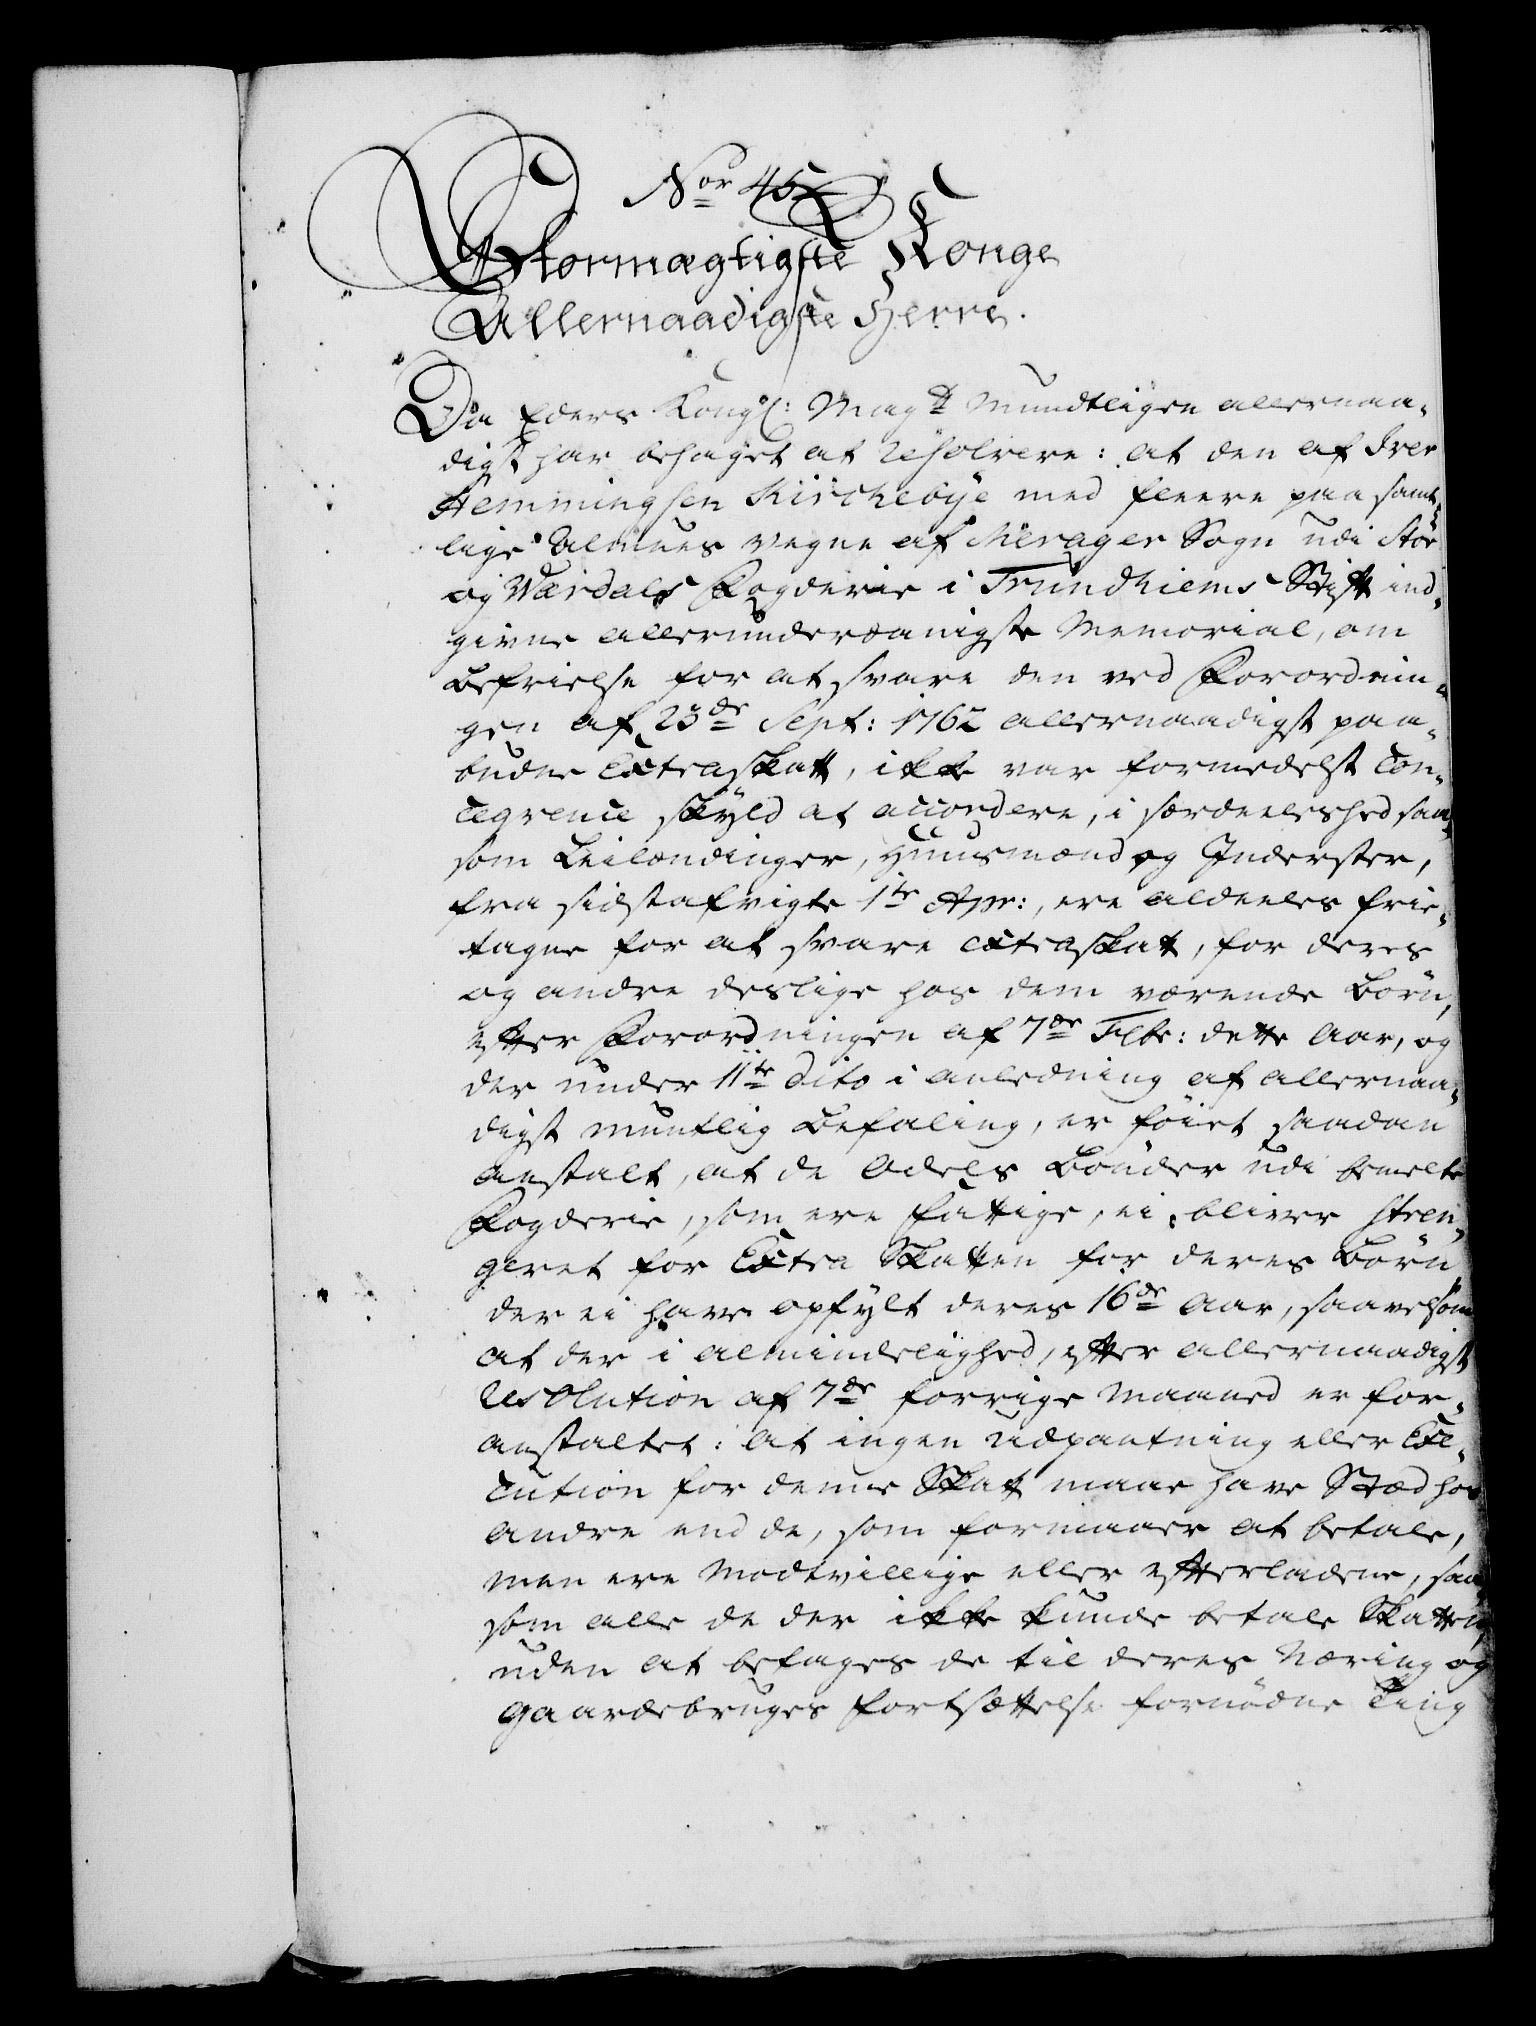 Nor 45
Stormægtigste Konge
Allernaadigste Herre.
Da Eders Kongl: Mayt Mundtligen allernaa-
digst har behaget at resolvere: at den af Iver
Hemmingsen Kirchebye med fleere paa samt-
lige Almues vegne af Merager Sogn udi Stör
og Værdals Fogderie i Trundhiems Stift ind-
givne allerunderdanigste Memorial, om
Befrielse for at svare den ved Forordnin-
gen af 23de Sept: 1762 allernaadigst paa-
budne Extraskatt, ikke var formedelst Con-
seqvence skyld at accordere, i særdeeleshed saa-
som Leilændinger, Huusmænd og Inderster,
fra sidstafvigte 1te Apr:, ere aldeeles frie-
tagne for at svare Extraskatt, for deres
og andre deslige hos dem værende Börn,
efter Forordningen af 7de Febr: dette Aar, og
der under 11te dito i anledning af allernaa-
digst muntlig Befaling, er föiet saadan
anstalt, at de Odels Bönder udi bemelte
Fogderie, som ere fattige, ei bliver stren-
geret for Extra Skatten for deres Börn
der ei have opfylt deres 16de Aar, saavelsom
at der i almindelighed, efter allernaadigst
Resolution af 7de forrige Maaned er for-
anstaltet: at ingen Udpantning eller Exe-
cution for denne Skat maae have Stæd hos
andre end de, som formaaer at betale,
men ere Modtvillige eller efterladene, saa-
som alle de der ikke kunde betale Skatten,
uden at befages de til deres Næring og
Gaardebruges fortsættelse fornödne Ting